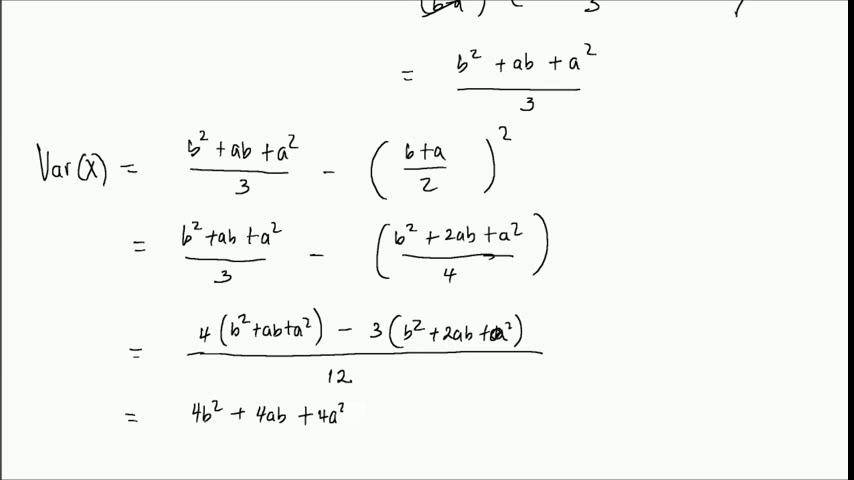 = (b² + ab + a²)/3
Var(X) = (b² + ab + a²)/3 - ((b+a)/2)²
= (b² + ab + a²)/3 - ((b² + 2ab + a²)/4)
= (4(b² + ab + a²) - 3(b² + 2ab + a²))/12
= 4b² + 4ab + 4a²